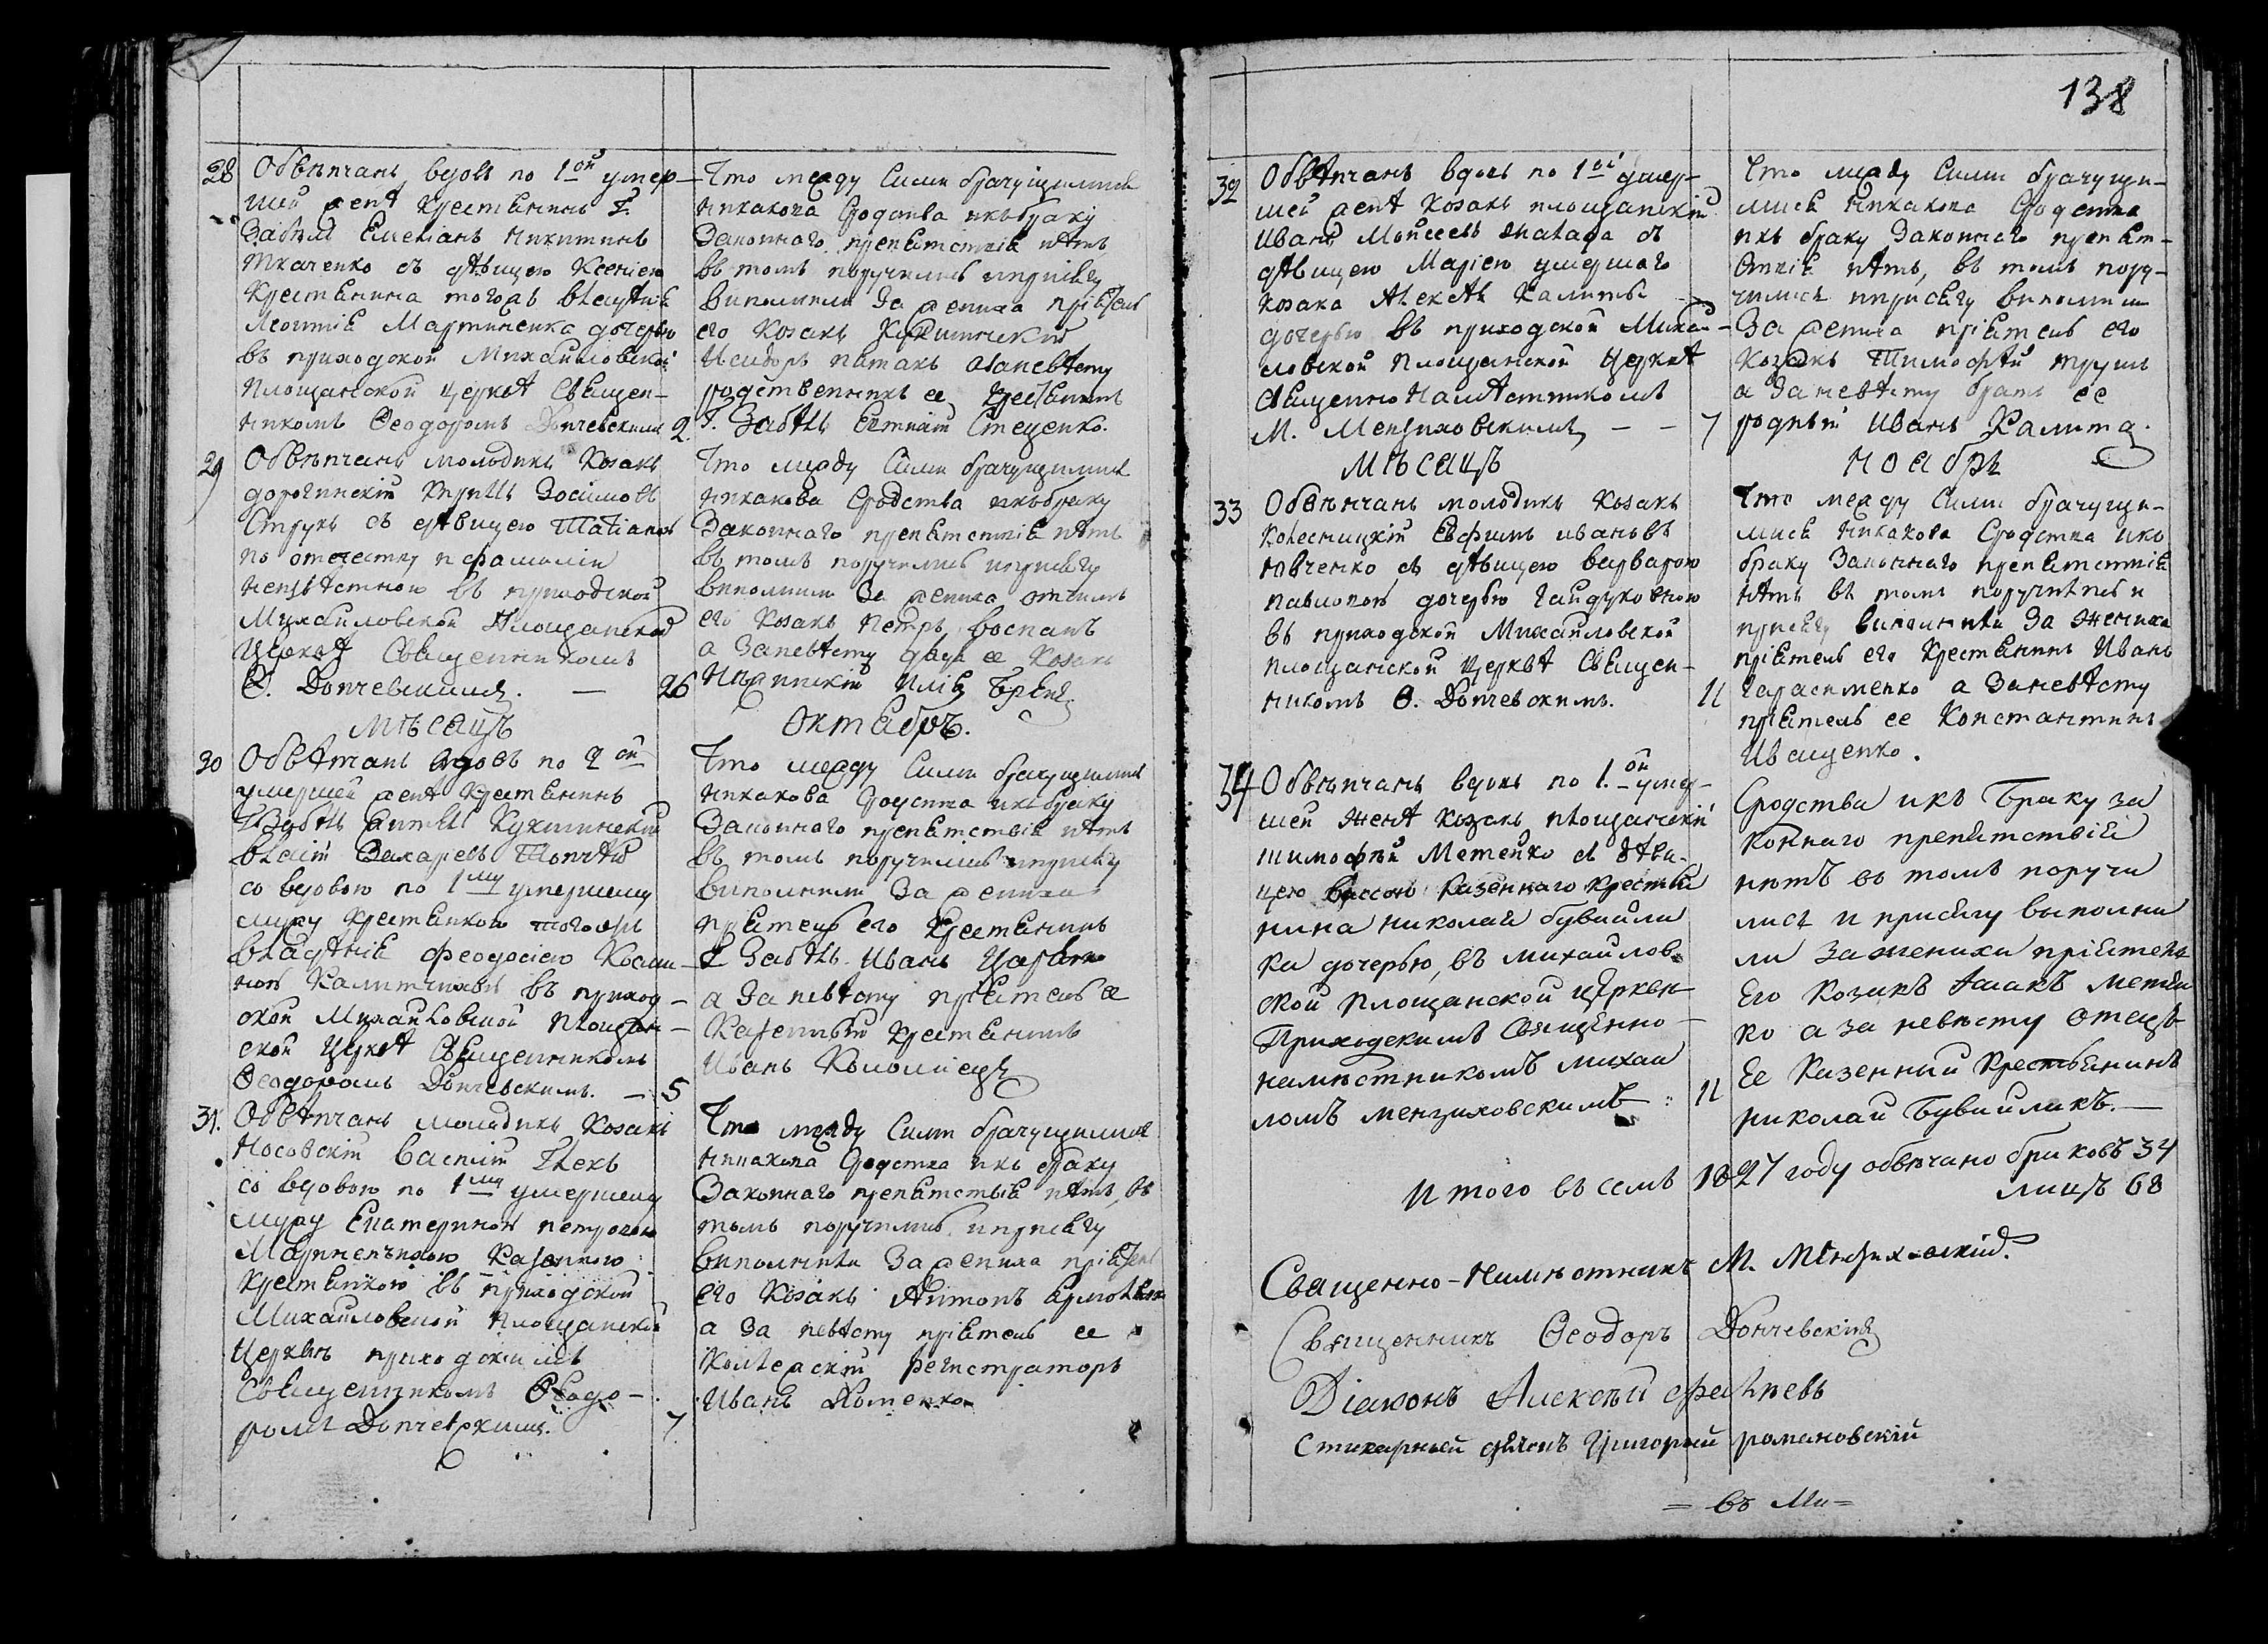 138
28 Обвѣнчанъ вдовъ по 1ой умер-
шей женѣ крестянинъ Г.
Забѣлы Емелианъ Никитинъ
Ткаченко съ дѣвицею Ксениею
Крестянина тогожъ владѣния
Леонтия Мартиненка дочерью
въ приходской Михайловской
Площанской церквѣ Священ-
никомъ Ѳеодоромъ Дончевскимъ 2.
Что между Сими брачущимися
никакова Сродства икъбраку
Законного препятствия нѣтъ,
въ томъ поручились иприсягу
виполнили За жениха приятель
его Козакъ
Исидоръ Патакъ азаневѣсту
родственникъ ее крестянинъ
Г. Забѣлы Евтихий Стеценко.
29 Обвѣнчанъ молодикъ Козакъ
дорогинский Кирилъ Зосимовъ
Струкъ съ дѣвицею Татианою
по отечеству и фамилии
неизвѣстною въ приходской
Михайловской Площанской
Церквѣ Священникомъ
Ѳ. Дончевскимъ. — 26
Что между Сими брачущимися
никакова Сродства икъбраку
Законного препятствия нѣтъ
въ томъ поручились иприсягу
виполнили За жениха отчимъ
его Козакъ Петръ Воспанъ
а Заневѣсту дядя ее Козакъ
Илия Брей.
мѣсяцъ Октябръ.
30 Обвѣнчанъ вдовъ по 2ой
умершей женѣ Крестянинъ
Г Забѣлы
Захариевъ
со вдовою по 1му умершему
мужу Крестянкою тогожъ
владѣния Феодосиею
въ приход-
ской Михайловской Площан-
ской Церквѣ Священникомъ
Ѳеодоромъ Дончевскимъ. — 5
Что между Сими брачущимися
никакова Сродства икъбраку
Законного препятствия нѣтъ
въ томъ поручились иприсягу
виполнили За жениха
приятель его Крестянинъ
Г Забѣлы Иванъ
а За невѣсту приятель ее
Казенный Крестянинъ
Иванъ Коломиецъ
31. Обвѣнчанъ молодикъ Козакъ
Носовский Василий
со вдовою по 1му умершему
мужу Екатериною Петровою
Казенною
Крестянкою въ приходской
Михайловской Площанской
Церквѣ приходскимъ
Священникомъ Ѳеодо-
ромъ Дончевскимъ. 7
Что между Сими брачущимися
никакова Сродства икъ браку
Законного препятствия нѣтъ, въ
томъ поручились иприсягу
виполнили За жениха приятель
его Козакъ Антонъ
а За невѣсту приятель ее
Колѣжский Регистраторъ
Иванъ
32 Обвѣнчанъ вдовъ по 1ой умер-
шей женѣ Козакъ площанский
Иванъ Моисеевъ съ
дѣвицею Мариею умершаго
Козака Алексѣя Калиты
дочерью въ приходской Михай-
ловской Площанской Церквѣ
Священно Намѣстникомъ
М. Мензиховскимъ — — 7
Что между Сими брачущи-
мися никакова Сродства
икъ браку Законного препят-
ствия нѣтъ, въ томъ пору-
чились иприсягу виполнили
За жениха приятель его
Козакъ Тимофѣй Трушъ
а Заневѣсту братъ ее
родный Иванъ Калита.
мѣсяцъ ноабръ
33 Обвѣнчанъ молодикъ Козакъ
Колесницкій Евфимъ ивановъ
Ювченко съ дѣвицею варварою
павловою дочерью Гайдуковною
въ приходской Михайловской
площанской Церквѣ Священ-
никомъ Ѳ. Дончевскимъ. 11
Что между Сими брачущи-
мися никакова Сродства икъ
браку Законного препятствия
нѣтъ въ томъ поручились и
присягу виполнили За жениха
приятель его Крестянинъ Иванъ
Гарасименко а Заневѣсту
приятель ее Константинъ
Иващенко.
34 Обвѣнчанъ вдовъ по 1.ой умер-
шей женѣ Козакъ площанский
тимофѣй Метейко съ дѣви-
цею Казенного крестья
нина николая бувайли
ка дочерью, въ михайлов
ской площанской церкви
Приходскимъ Священно-
намѣстникомъ михаи
ломъ мензиховскимъ 11
Сродства икъ Браку за
конного препятствия
нѣтъ въ томъ поручи
лися и присягу выполни
ли за жениха приятель
Его Козакъ Исакъ метей
ко а за невѣсту отецъ
Ее Казенный крестьянинъ
николай Бувайликъ.—
Итого въ семъ 1827 году обвѣчано браковъ 34
лицъ 68
Священно-Намѣстникъ М. Мензиховский.
Священникъ Ѳеодоръ Дончевский
Діаконъ Алексѣй
Стихарный дячокъ Григорий романовский
= въ Ми=